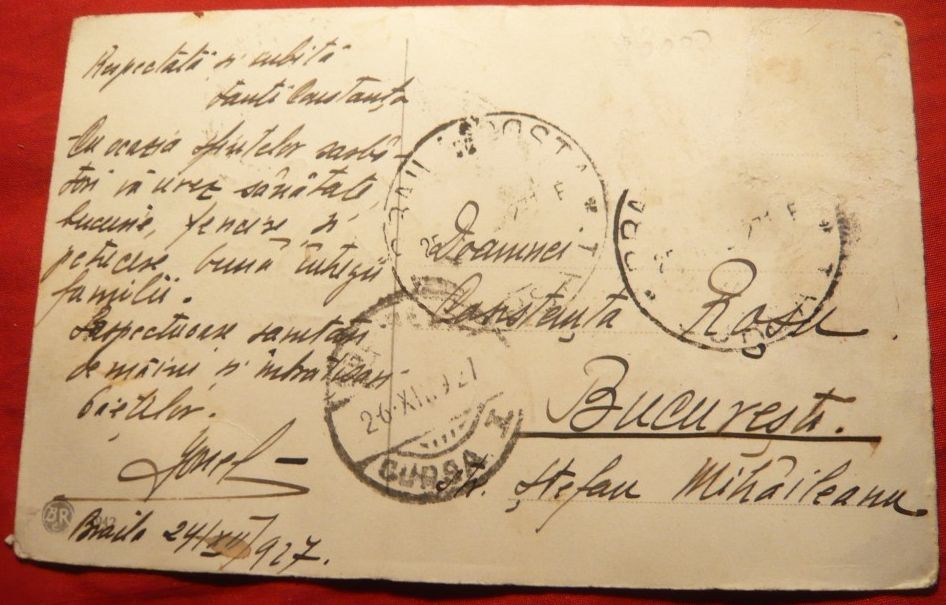 Respectată și iubită
tanti Constanța
Cu ocazia sfintelor sărbă-
tori vă urez sănătate,
bucurie, fericire și
petrecere bună întregii
familii.
Respectuoase sărutări
de mâini și îmbrățișări
băeților.
Ionel
Braila 24/XII/927.
Doamnei
Constanța Roșu
București.
Str. Ștefan Mihăileanu
BRAILA POSTA
25
BRA
26.XII.927
CURSA
BR